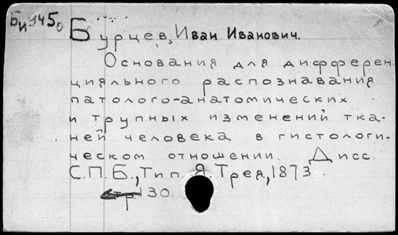 Би 945о
Бурцев, Иван Иванович.
Основания для дифферен
цияльного распознавания
патолого-анатомических
и трупных изменений тка-
ней человека в гистологи-
ческом отношении. Дисс.
С.П.Б., Тип. Я Трея, 1873.
стр 130.